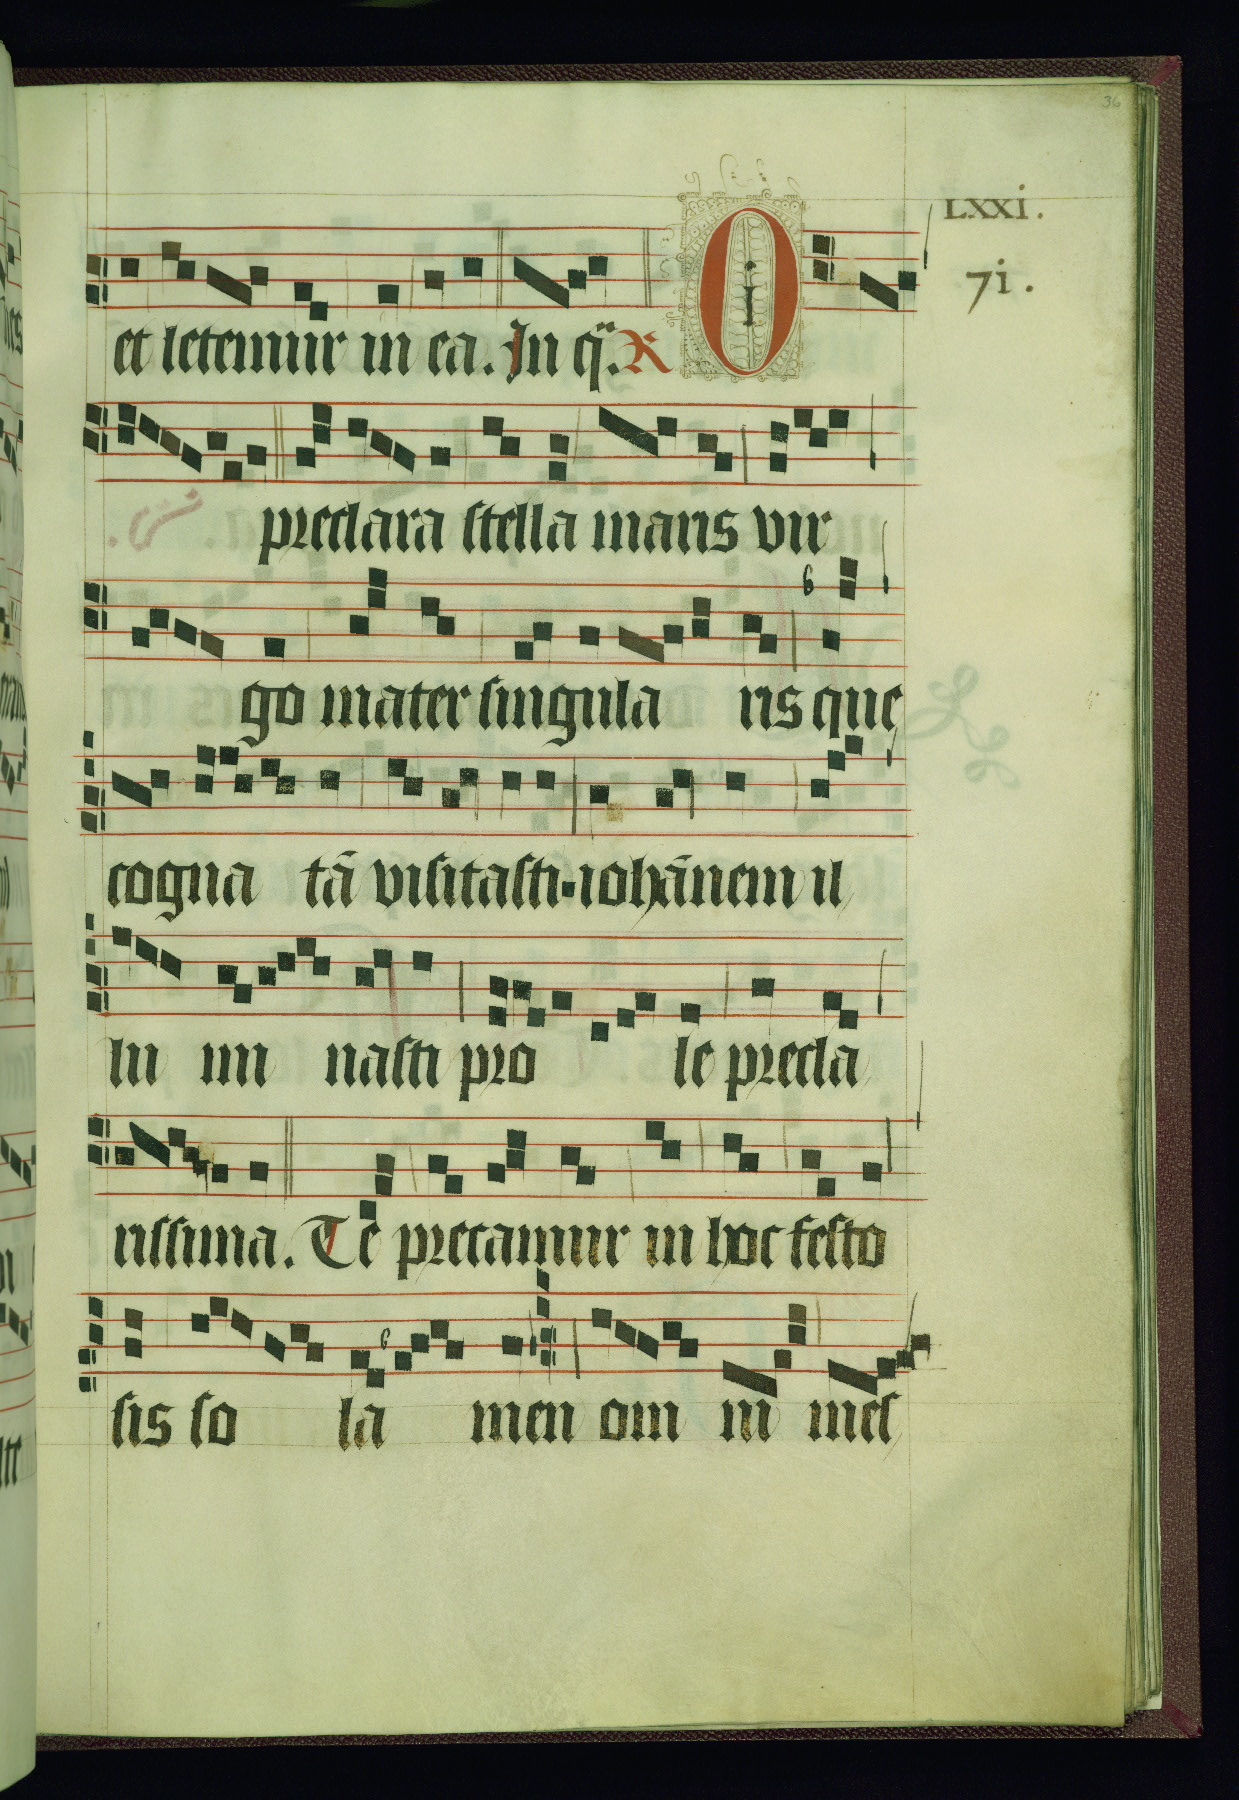 36
LXXI.
7i.
et letemur in ea. In q̈. R O i
preclara stella maris vir
go mater singula ris que
cogna tā visitasti·iohānem il
lu mi nasti pro le precla
rissima. Te precamur in hoc festo
sis so la men om ni mes